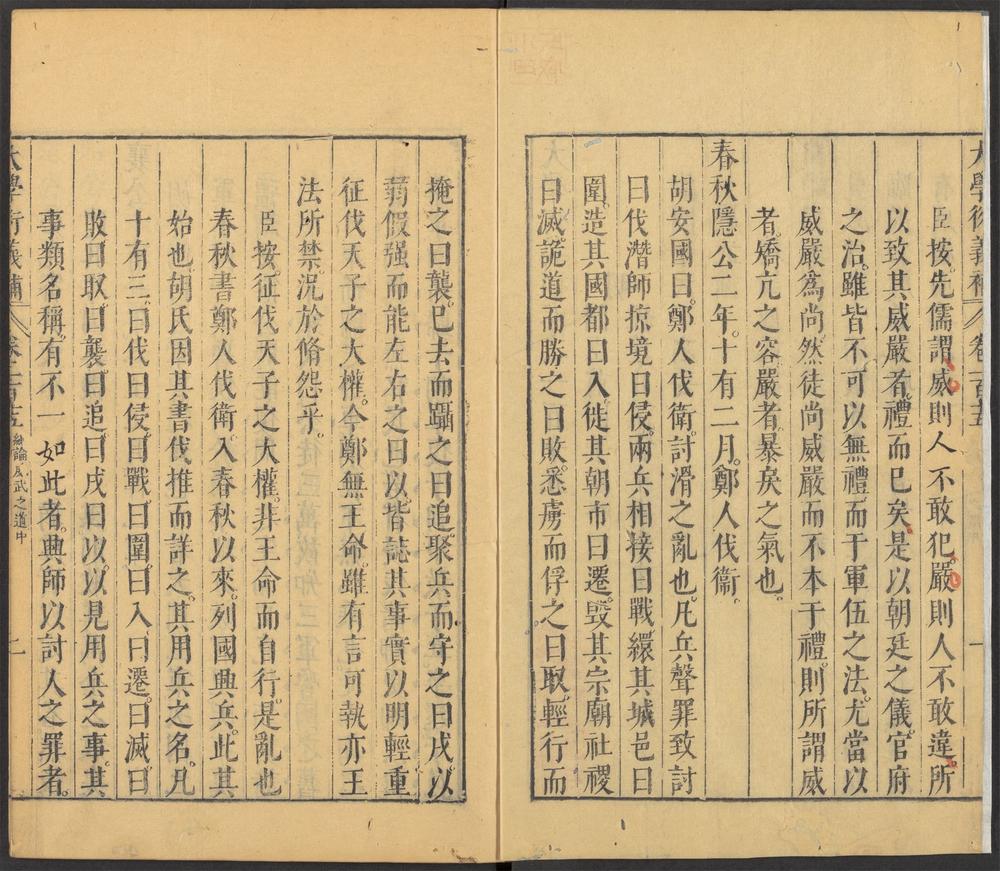 大學衍義補 卷一百十五 一
臣按先儒謂威則人不敢犯嚴則人不敢違所
以致其威嚴者禮而已矣是以朝廷之儀官府
之治雖皆不可以無禮而于軍伍之法尤當以
威嚴為尚然徒尚威嚴而不本于禮則所謂威
者矯亢之容嚴者暴戾之氣也
春秋隱公二年十有二月鄭人伐衞
胡安國曰鄭人伐衞討滑之亂也凡兵聲罪致討
曰伐潛師掠境曰侵兩兵相接曰戰繯其城邑曰
圍造其國都曰入徙其朝市曰遷毀其宗廟社稷
曰滅詭道而勝之曰敗悉虜而俘之曰取輕行而
掩之曰襲已去而躡之曰追聚兵而守之曰戍以
弱假强而能左右之曰以皆誌其事實以明輕重
征伐天子之大權今鄭無王命雖有言可執亦王
法所禁況於脩怨乎
臣按征伐天子之大權非王命而自行是亂也
春秋書鄭人伐衞入春秋以來列國興兵此其
始也胡氏因其書伐推而詳之其用兵之名凡
十有三曰伐曰侵曰戰曰圍曰入曰遷曰滅曰
敗曰取曰襲曰追曰戍曰以以見用兵之事其
事類名稱有不一如此者興師以討人之罪者
大學衍義補 卷一百十五 總論威武之道中 二